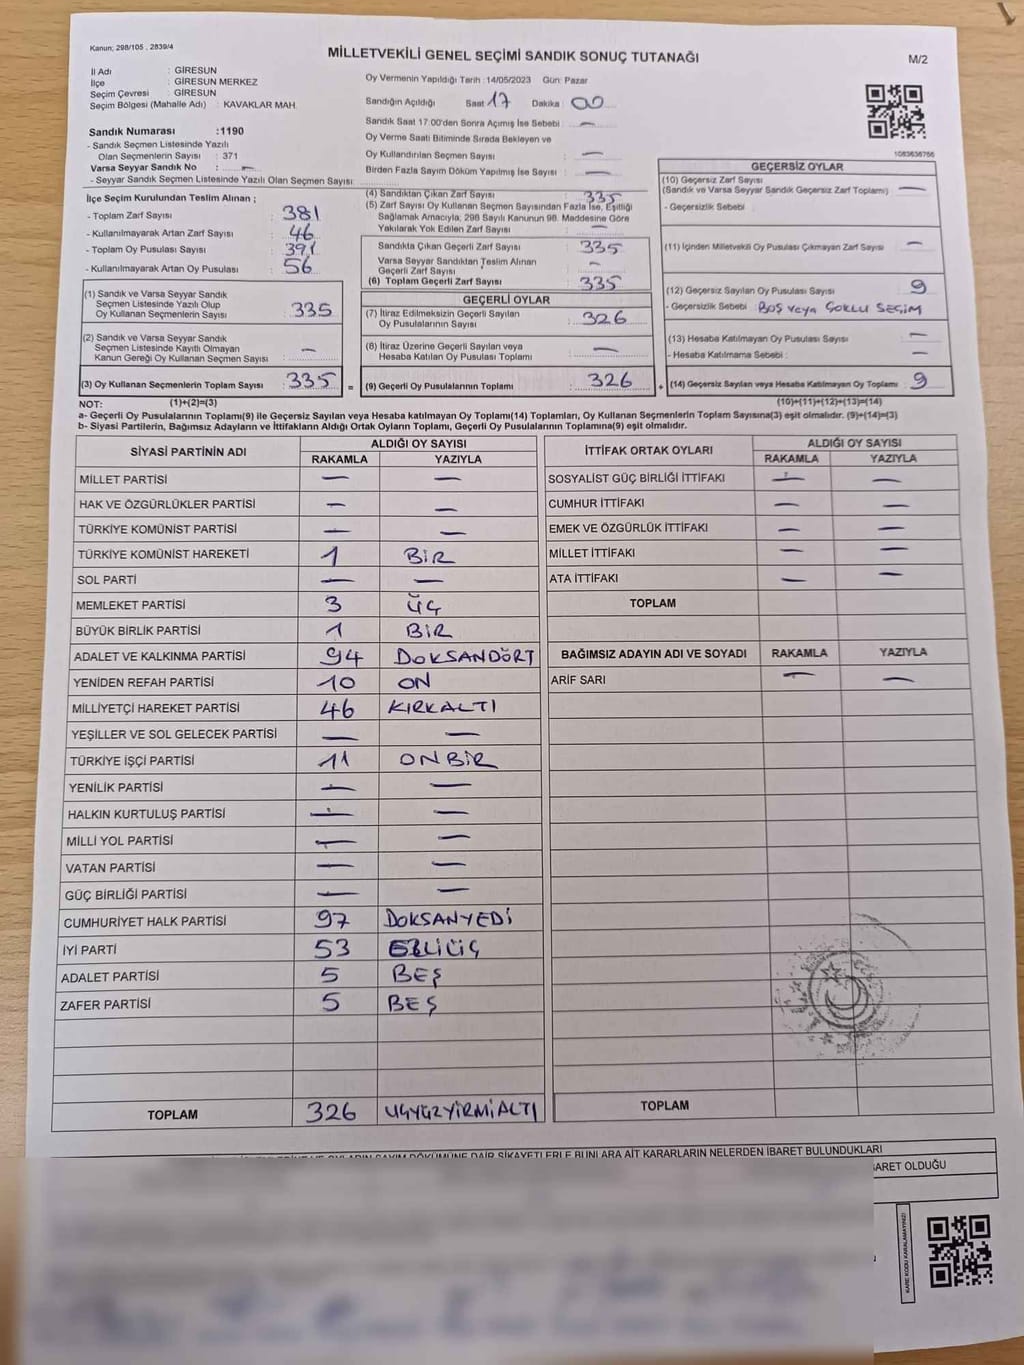 Kanun; 298/105 , 2839/4
MİLLETVEKİLİ GENEL SEÇİMİ SANDIK SONUÇ TUTANAĞI
M/2
İl Adı : GİRESUN
İlçe : GİRESUN MERKEZ
Seçim Çevresi : GİRESUN
Seçim Bölgesi (Mahalle Adı) : KAVAKLAR MAH.
Sandık Numarası :1190
- Sandık Seçmen Listesinde Yazılı
Olan Seçmenlerin Sayısı : 371
Varsa Seyyar Sandık No : —
- Seyyar Sandık Seçmen Listesinde Yazılı Olan Seçmen Sayısı
İlçe Seçim Kurulundan Teslim Alınan ;
- Toplam Zarf Sayısı 381
- Kullanılmayarak Artan Zarf Sayısı 46
- Toplam Oy Pusulası Sayısı 391
- Kullanılmayarak Artan Oy Pusulası 56
(1) Sandık ve Varsa Seyyar Sandık
Seçmen Listesinde Yazılı Olup
Oy Kullanan Seçmenlerin Sayısı : 335
(2) Sandık ve Varsa Seyyar Sandık
Seçmen Listesinde Kayıtlı Olmayan
Kanun Gereği Oy Kullanan Seçmen Sayısı : —
(3) Oy Kullanan Seçmenlerin Toplam Sayısı 335 =
Oy Vermenin Yapıldığı Tarih : 14/05/2023 Gün: Pazar
Sandığın Açıldığı Saat 17 Dakika 00
Sandık Saat 17:00'den Sonra Açımış İse Sebebi : —
Oy Verme Saati Bitiminde Sırada Bekleyen ve
Oy Kullandırılan Seçmen Sayısı : —
Birden Fazla Sayım Döküm Yapılmış İse Sayısı : —
(4) Sandıktan Çıkan Zarf Sayısı : 335
(5) Zarf Sayısı Oy Kullanan Seçmen Sayısından Fazla İse, Eşitliği
Sağlamak Amacıyla; 298 Sayılı Kanunun 98. Maddesine Göre
Yakılarak Yok Edilen Zarf Sayısı : —
Sandıkta Çıkan Geçerli Zarf Sayısı : 335
Varsa Seyyar Sandıktan Teslim Alınan
Geçerli Zarf Sayısı : —
(6) Toplam Geçerli Zarf Sayısı : 335
GEÇERLİ OYLAR
(7) İtiraz Edilmeksizin Geçerli Sayılan
Oy Pusulalarının Sayısı : 326
(8) İtiraz Üzerine Geçerli Sayılan veya
Hesaba Katılan Oy Pusulası Toplamı : —
(9) Geçerli Oy Pusulalarının Toplamı : 326 +
1083638766
GEÇERSİZ OYLAR
(10) Geçersiz Zarf Sayısı
(Sandık ve Varsa Seyyar Sandık Geçersiz Zarf Toplamı) : —
- Geçersizlik Sebebi :
(11) İçinden Milletvekili Oy Pusulası Çıkmayan Zarf Sayısı : —
(12) Geçersiz Sayılan Oy Pusulası Sayısı : 9
- Geçersizlik Sebebi : BOŞ veya ÇOKLU SEÇİM
(13) Hesaba Katılmayan Oy Pusulası Sayısı : —
- Hesaba Katılmama Sebebi : —
(14) Geçersiz Sayılan veya Hesaba Katılmayan Oy Toplamı : 9
NOT: (1)+(2)=(3) (10)+(11)+(12)+(13)=(14)
a- Geçerli Oy Pusulalarının Toplamı(9) ile Geçersiz Sayılan veya Hesaba katılmayan Oy Toplamı(14) Toplamları, Oy Kullanan Seçmenlerin Toplam Sayısına(3) eşit olmalıdır. (9)+(14)=(3)
b- Siyasi Partilerin, Bağımsız Adayların ve İttifakların Aldığı Ortak Oyların Toplamı, Geçerli Oy Pusulalarının Toplamına(9) eşit olmalıdır.
SİYASİ PARTİNİN ADI ALDIĞI OY SAYISI
RAKAMLA YAZIYLA
MİLLET PARTİSİ — —
HAK VE ÖZGÜRLÜKLER PARTİSİ — —
TÜRKİYE KOMÜNİST PARTİSİ — —
TÜRKİYE KOMÜNİST HAREKETİ 1 BİR
SOL PARTİ — —
MEMLEKET PARTİSİ 3 ÜÇ
BÜYÜK BİRLİK PARTİSİ 1 BİR
ADALET VE KALKINMA PARTİSİ 94 DOKSANDÖRT
YENİDEN REFAH PARTİSİ 10 ON
MİLLİYETÇİ HAREKET PARTİSİ 46 KIRKALTI
YEŞİLLER VE SOL GELECEK PARTİSİ — —
TÜRKİYE İŞÇİ PARTİSİ 11 ONBİR
YENİLİK PARTİSİ — —
HALKIN KURTULUŞ PARTİSİ — —
MİLLİ YOL PARTİSİ — —
VATAN PARTİSİ — —
GÜÇ BİRLİĞİ PARTİSİ — —
CUMHURİYET HALK PARTİSİ 97 DOKSANYEDİ
İYİ PARTİ 53 ELLİÜÇ
ADALET PARTİSİ 5 BEŞ
ZAFER PARTİSİ 5 BEŞ
TOPLAM 326 UÇYÜZYİRMİALTI
İTTİFAK ORTAK OYLARI ALDIĞI OY SAYISI
RAKAMLA YAZIYLA
SOSYALİST GÜÇ BİRLİĞİ İTTİFAKI — —
CUMHUR İTTİFAKI — —
EMEK VE ÖZGÜRLÜK İTTİFAKI — —
MİLLET İTTİFAKI — —
ATA İTTİFAKI — —
TOPLAM
BAĞIMSIZ ADAYIN ADI VE SOYADI RAKAMLA YAZIYLA
ARİF SARI — —
TOPLAM
DÖKÜMÜNE DAİR ŞİKAYETLERLE BUNLARA AİT KARARLARIN NELERDEN İBARET BULUNDUKLARI
BARET OLDUĞU
KARE KODU KARALAMAYINIZ!